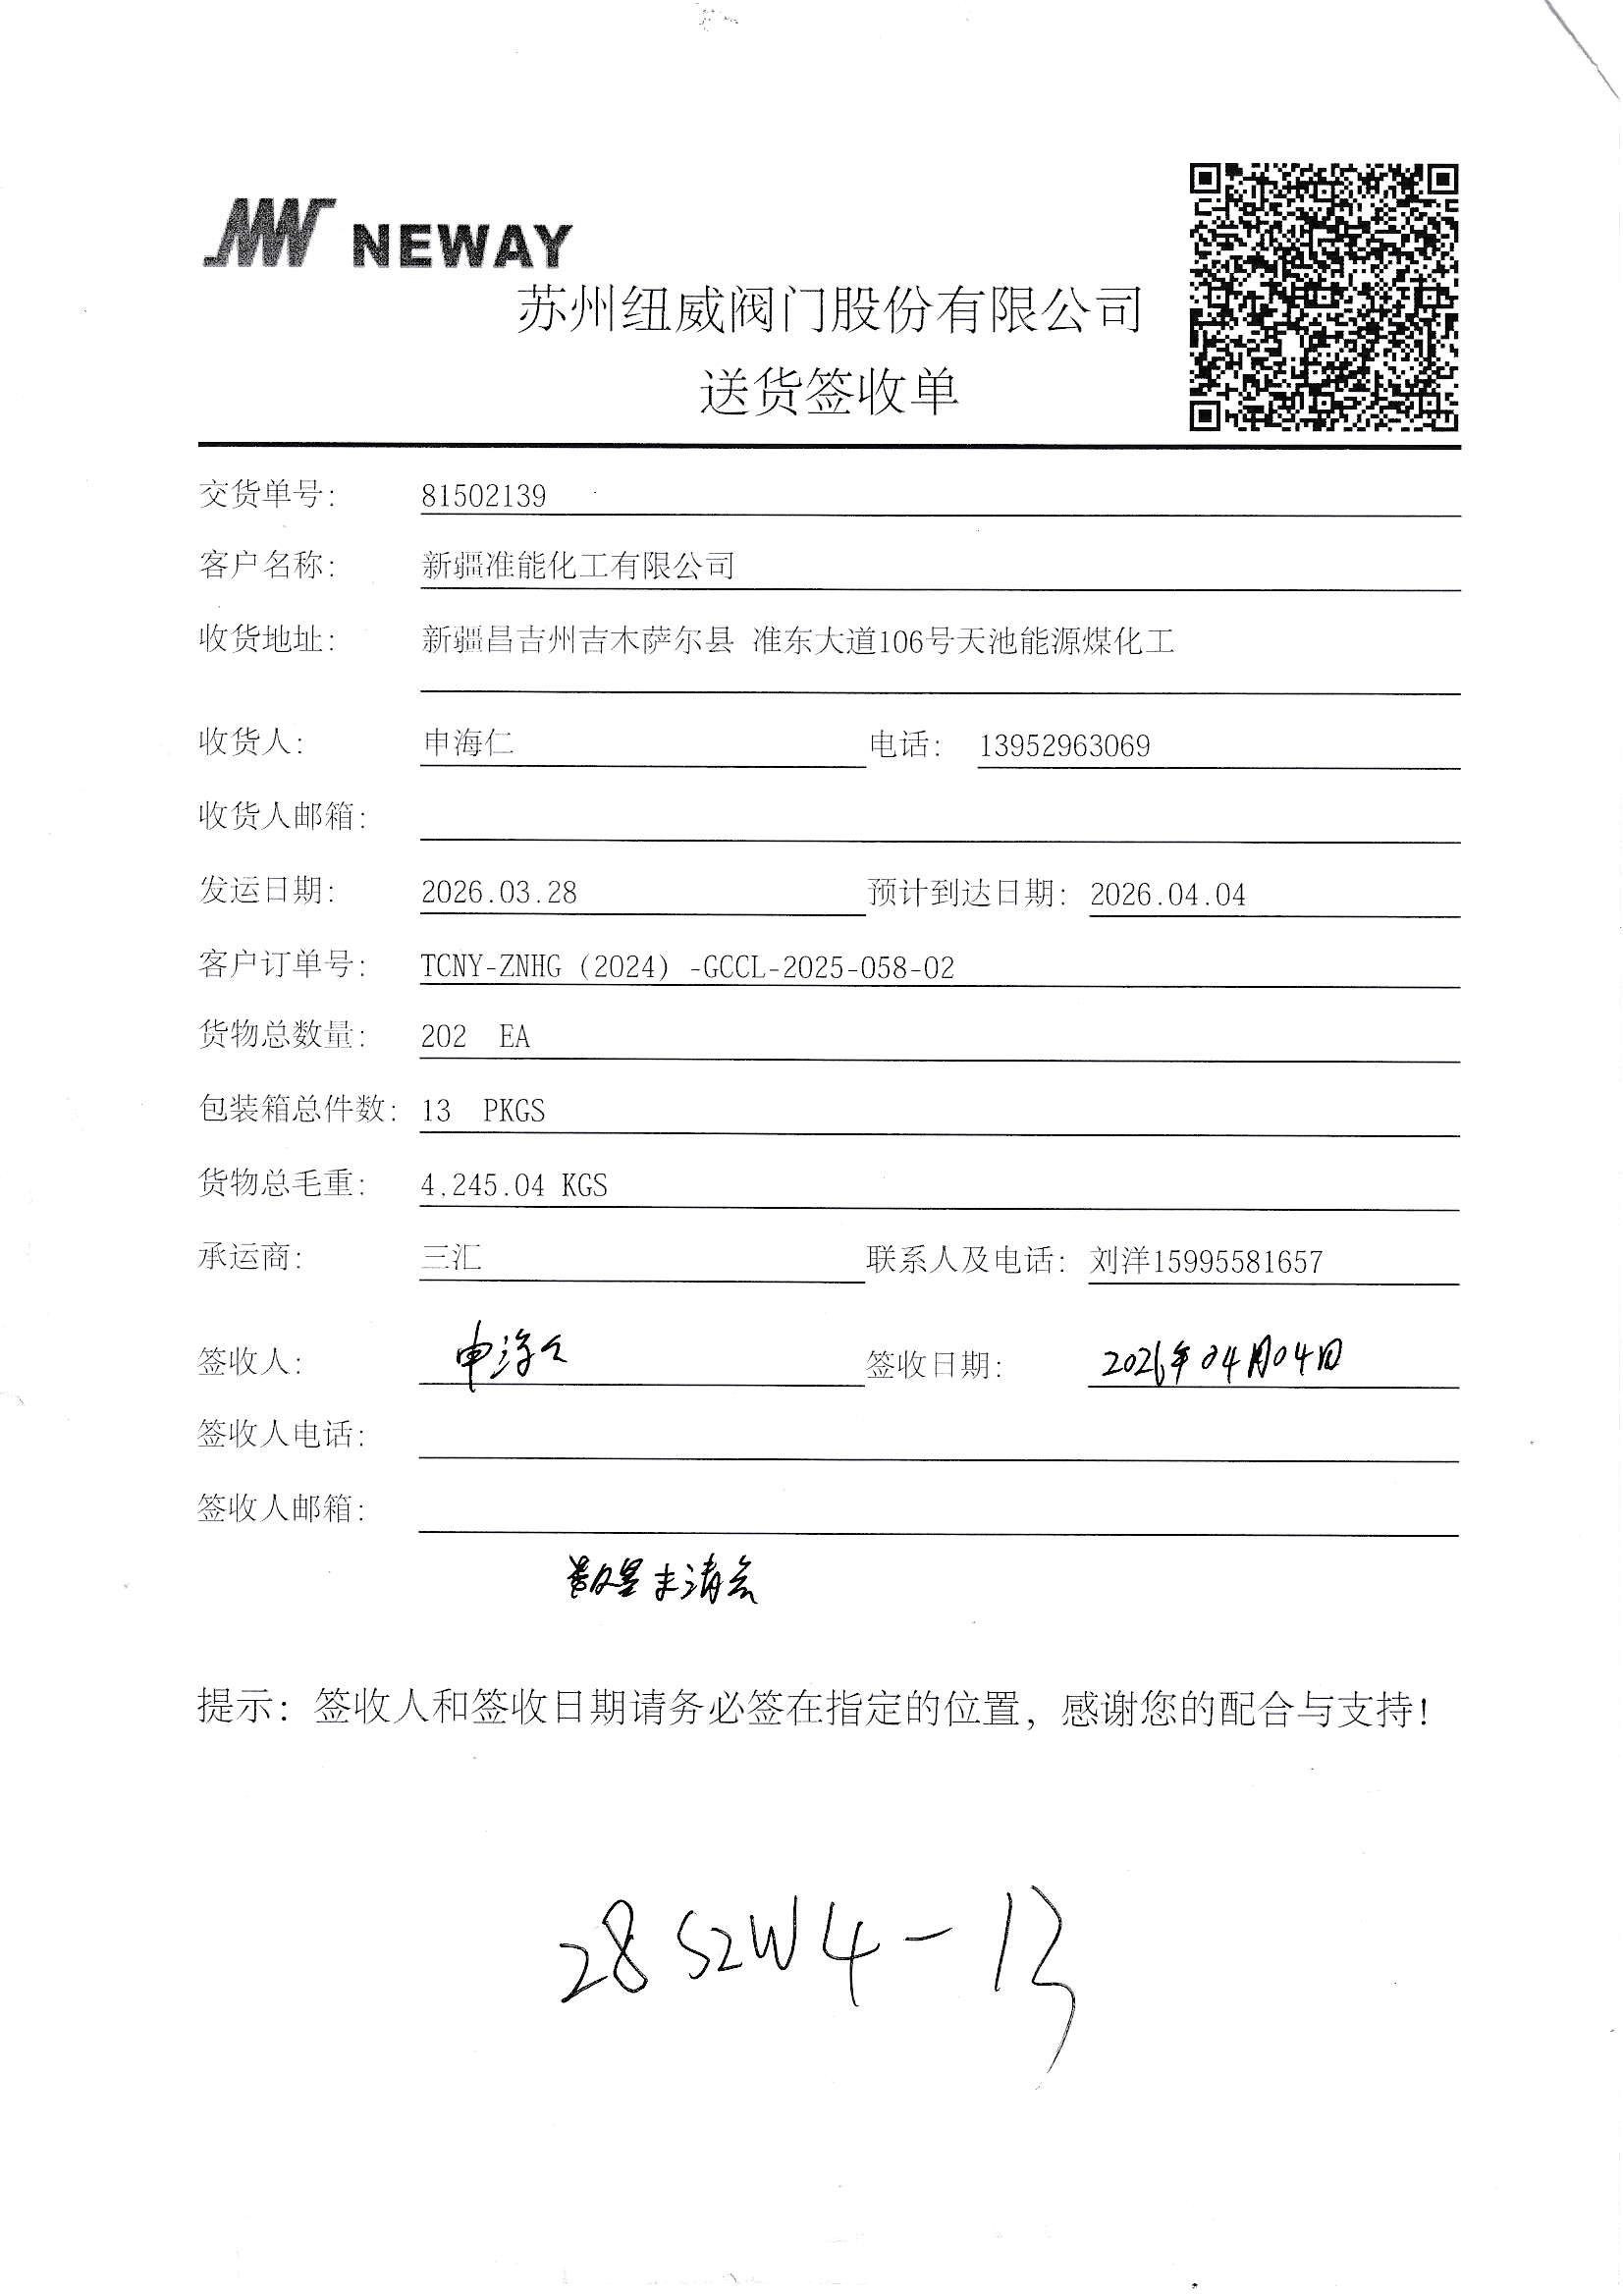 NEWAY
苏州纽威阀门股份有限公司
送货签收单
交货单号: 81502139
客户名称: 新疆准能化工有限公司
收货地址: 新疆昌吉州吉木萨尔县 准东大道106号天池能源煤化工
收货人: 申海仁 电话: 13952963069
收货人邮箱:
发运日期: 2026.03.28 预计到达日期: 2026.04.04
客户订单号: TCNY-ZNHG (2024) -GCCL-2025-058-02
货物总数量: 202 EA
包装箱总件数: 13 PKGS
货物总毛重: 4,245.04 KGS
承运商: 三汇 联系人及电话: 刘洋15995581657
签收人: 申海仁 签收日期: 2026年04月04日
签收人电话:
签收人邮箱:
数量未清点
提示: 签收人和签收日期请务必签在指定的位置, 感谢您的配合与支持!
28S2W4-13